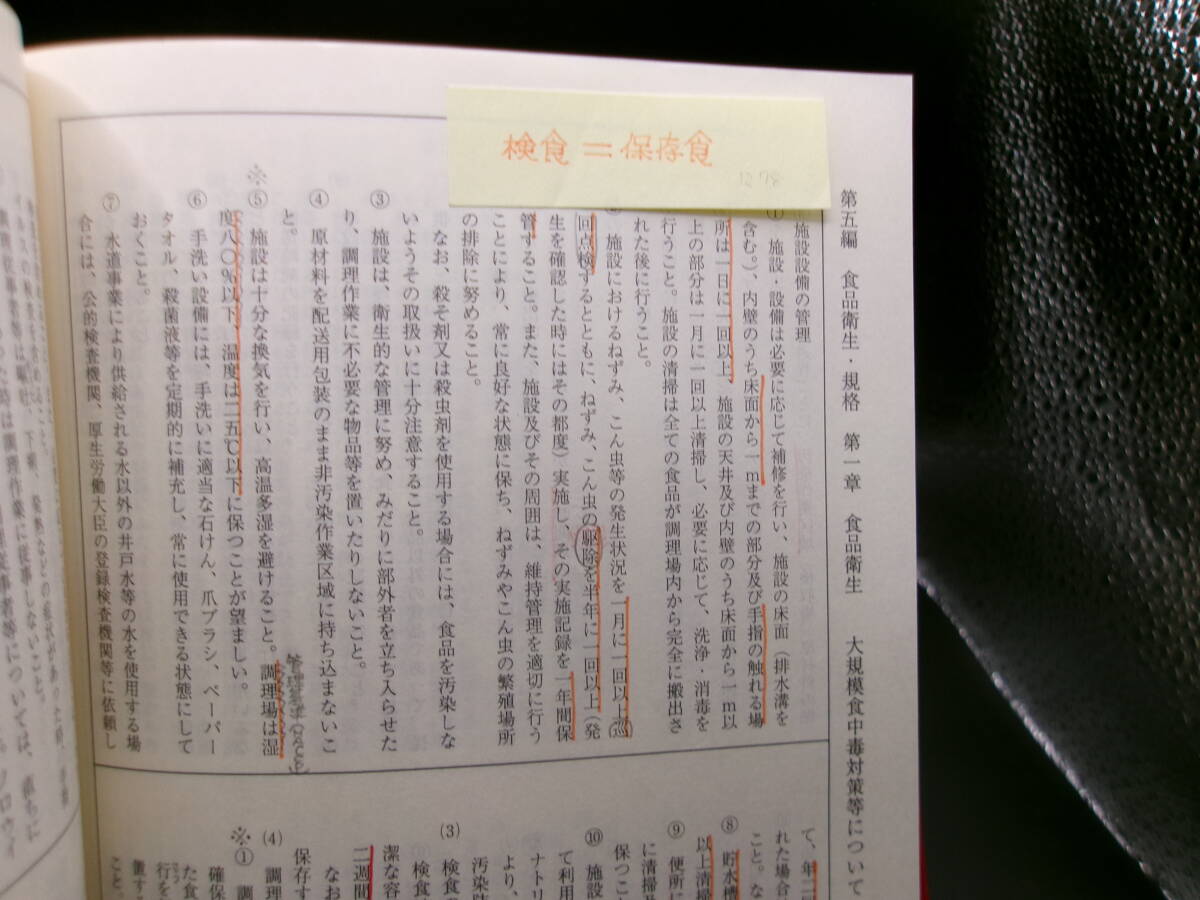 検食＝保存食
1278
第五編 食品衛生・規格 第一章 食品衛生 大規模食中毒対策等について
施設設備の管理
① 施設・設備は必要に応じて補修を行い、施設の床面（排水溝を
含む。）、内壁のうち床面から一mまでの部分及び手指の触れる場
所は一日に一回以上、施設の天井及び内壁のうち床面から一m以
上の部分は一月に一回以上清掃し、必要に応じて、洗浄・消毒を
行うこと。施設の清掃は全ての食品が調理場内から完全に搬出さ
れた後に行うこと。
施設におけるねずみ、こん虫等の発生状況を一月に一回以上巡
回点検するとともに、ねずみ、こん虫の駆除を半年に一回以上（発
生を確認した時にはその都度）実施し、その実施記録を一年間保
管すること。また、施設及びその周囲は、維持管理を適切に行う
ことにより、常に良好な状態に保ち、ねずみやこん虫の繁殖場所
の排除に努めること。
なお、殺そ剤又は殺虫剤を使用する場合には、食品を汚染しな
いようその取扱いに十分注意すること。
③ 施設は、衛生的な管理に努め、みだりに部外者を立ち入らせた
り、調理作業に不必要な物品等を置いたりしないこと。
④ 原材料を配送用包装のまま非汚染作業区域に持ち込まないこ
と。
※
⑤ 施設は十分な換気を行い、高温多湿を避けること。調理場は湿
度八〇％以下、温度は二五℃以下に保つことが望ましい。
⑥ 手洗い設備には、手洗いに適当な石けん、爪ブラシ、ペーパー
タオル、殺菌液等を定期的に補充し、常に使用できる状態にして
おくこと。
⑦ 水道事業により供給される水以外の井戸水等の水を使用する場
合には、公的検査機関、厚生労働大臣の登録検査機関等に依頼し
て、年二
れた場合
こと。な
⑧ 貯水槽
以上清掃
⑨ 便所に
に清掃
保つこ
⑩ 施設
て利用
ナトリ
より、
汚染
(3) 検食
検食
潔な容
なお
二週間
保存す
(4) 調理
※
① 調
確保
た食
行を
置する
こと、